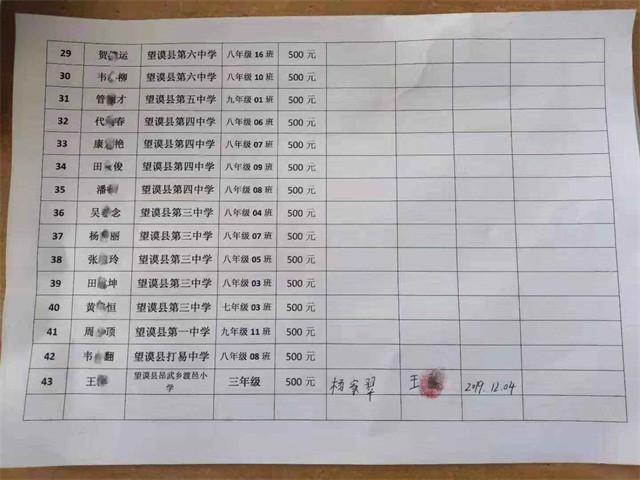 29 贺 运 望谟县第六中学 八年级 16 班 500 元
30 韦 柳 望谟县第六中学 八年级 10 班 500 元
31 管 才 望谟县第五中学 九年级 01 班 500 元
32 代 春 望谟县第四中学 八年级 06 班 500 元
33 康 艳 望谟县第四中学 八年级 07 班 500 元
34 田 俊 望谟县第四中学 八年级 09 班 500 元
35 潘 望谟县第四中学 八年级 08 班 500 元
36 吴 念 望谟县第三中学 八年级 04 班 500 元
37 杨 丽 望谟县第三中学 八年级 07 班 500 元
38 张 玲 望谟县第三中学 八年级 05 班 500 元
39 田 坤 望谟县第三中学 八年级 03 班 500 元
40 黄 恒 望谟县第三中学 七年级 03 班 500 元
41 周 顶 望谟县第一中学 九年级 11 班 500 元
42 韦 翻 望谟县打易中学 八年级 08 班 500 元
43 王 望谟县昂武乡渡邑小 三年级 500 元 杨家翠 王 2019.12.04
学